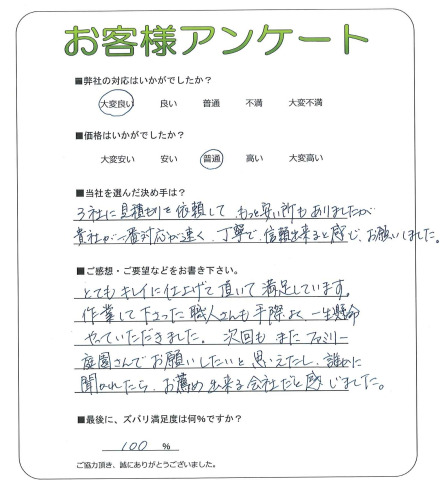 お客様アンケート
■弊社の対応はいかがでしたか？
大変良い 良い 普通 不満 大変不満
■価格はいかがでしたか？
大変安い 安い 普通 高い 大変高い
■当社を選んだ決め手は？
3社に見積りを依頼して、もっと安い所もありましたが
貴社が一番対応が速く、丁寧で、信頼出来ると感じ、お願いしました。
■ご感想・ご要望などをお書き下さい。
とてもキレイに仕上げて頂いて満足しています。
作業して下さった職人さんも手際よく、一生懸命
やっていただきました。次回も またファミリー
庭園さんでお願いしたいと思えたし、誰かに
聞かれたら、お薦め出来る会社だと感じました。
■最後に、ズバリ満足度は何%ですか？
100 %
ご協力頂き、誠にありがとうございました。